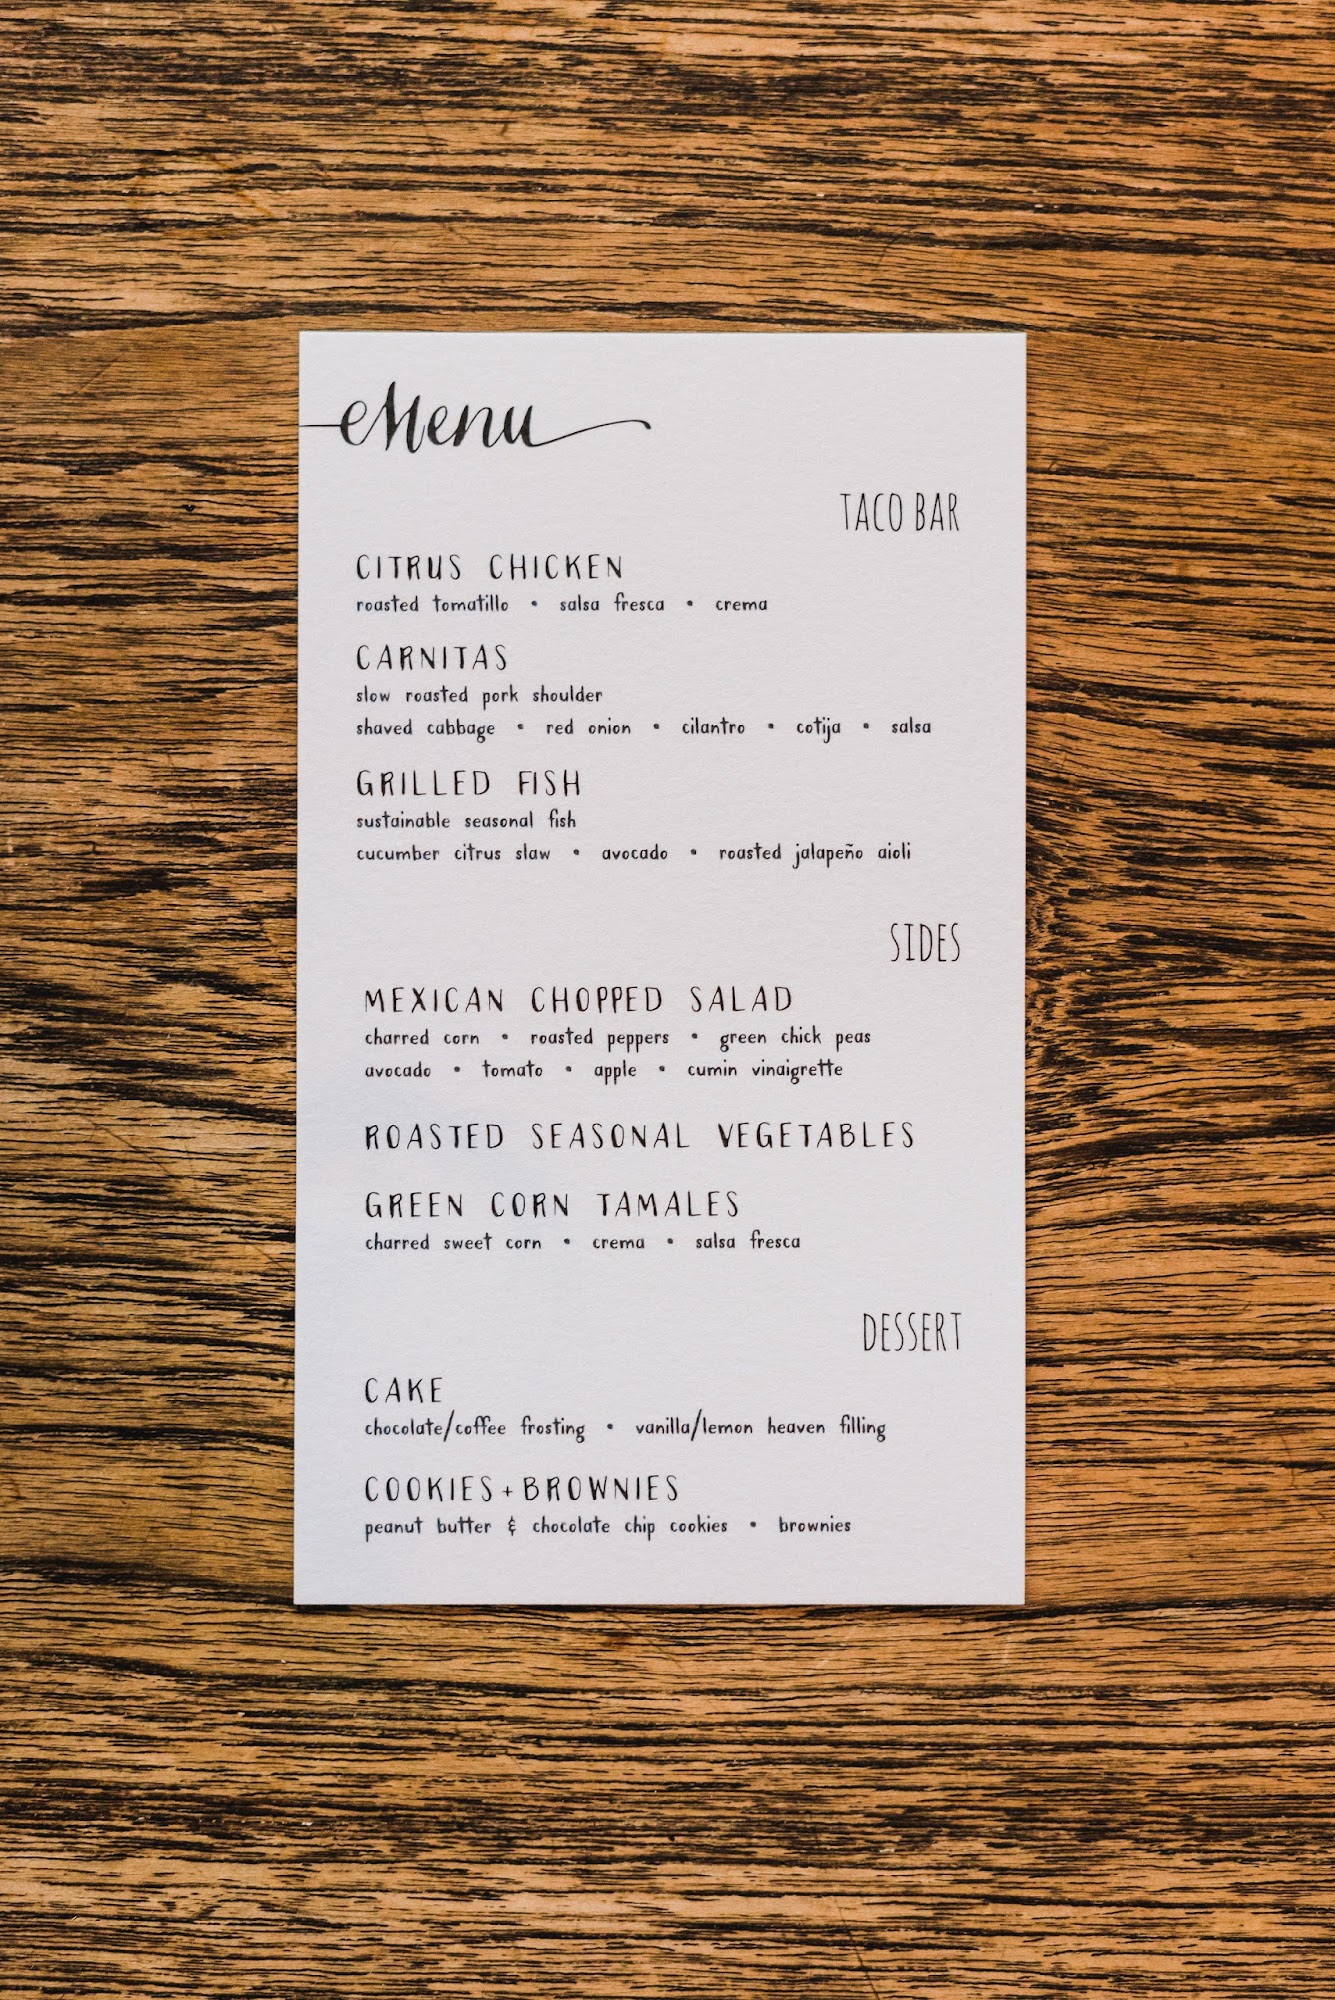 Menu
TACO BAR
CITRUS CHICKEN
roasted tomatillo • salsa fresca • crema
CARNITAS
slow roasted pork shoulder
shaved cabbage • red onion • cilantro • cotija • salsa
GRILLED FISH
sustainable seasonal fish
cucumber citrus slaw • avocado • roasted jalapeño aioli
SIDES
MEXICAN CHOPPED SALAD
charred corn • roasted peppers • green chick peas
avocado • tomato • apple • cumin vinaigrette
ROASTED SEASONAL VEGETABLES
GREEN CORN TAMALES
charred sweet corn • crema • salsa fresca
DESSERT
CAKE
chocolate/coffee frosting • vanilla/lemon heaven filling
COOKIES + BROWNIES
peanut butter & chocolate chip cookies • brownies